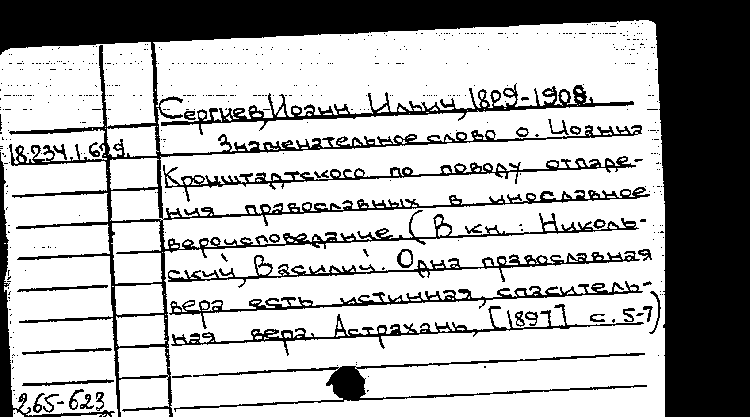 Сергиев, Иоанн Ильич, 1829-1908.
18.234.1.629.
Знаменательное слово о. Иоанна
Кронштадтского по поводу отпаде-
ния православных в инославное
вероисповедание. (В кн.: Николь-
ский, Василий. Одна православная
вера есть истинная, спаситель-
ная вера. Астрахань, [1897] с. 5-7)
265-623